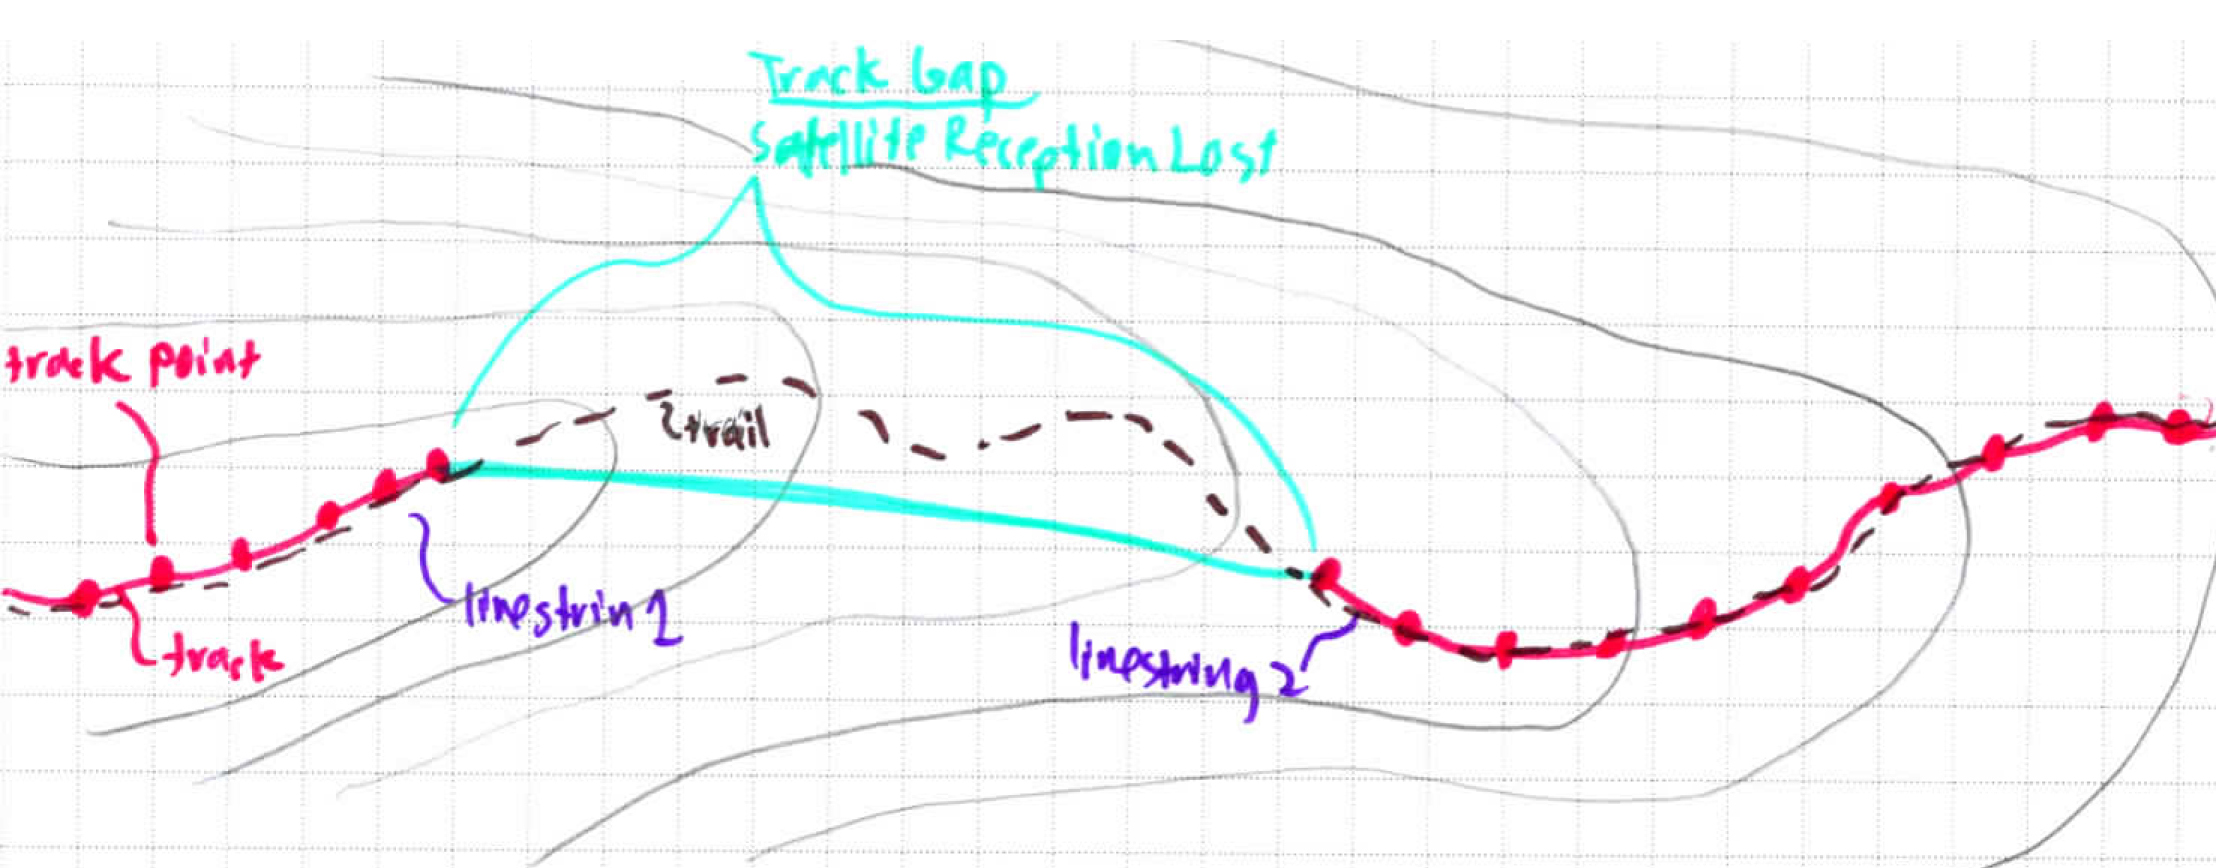 Track Gap
Satellite Reception Lost
track point
trail
linestrin 1
track
linestring 2